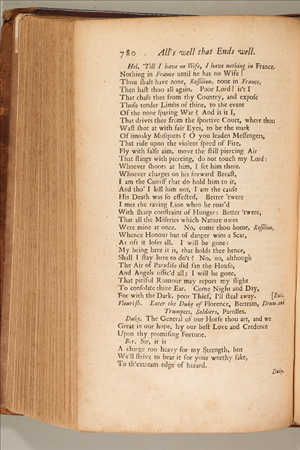 780 All's well that Ends well.
Hel. 'Till I have no Wife, I have nothing in France.
Nothing in France until he has no Wife!
Thou shalt have none, Rossilion, none in France,
Then hast thou all again. Poor Lord! is't I
That chase thee from thy Country, and expose
Those tender Limbs of thine, to the event
Of the none sparing War? And is it I,
That drives thee from the sportive Court, where thou
Wast shot at with fair Eyes, to be the mark
Of smoaky Musquets? O you leaden Messengers,
That ride upon the violent speed of Fire,
Fly with false aim, move the still piercing Air
That stings with piercing, do not touch my Lord:
Whoever shoots at him, I set him there.
Whoever charges on his forward Breast,
I am the Caitiff that do hold him to it,
And tho' I kill him not, I am the cause
His Death was so effected. Better 'twere
I met the raving Lion when he roar'd
With sharp constraint of Hunger: Better 'twere,
That all the Miseries which Nature owes
Were mine at once. No, come thou home, Rossilion,
Whence Honour but of danger wins a Scar,
As oft it loses all. I will be gone:
My being here it is, that holds thee hence,
Shall I stay here to do't? No, no, although
The Air of Paradise did fan the House,
And Angels offic'd all; I will be gone,
That pitiful Rumour may report my flight
To consolate thine Ear. Come Night and Day,
For with the Dark, poor Thief, I'll steal away. [Exit.
Flourish. Enter the Duke of Florence, Bertram, Drum and
Trumpets, Soldiers, Parolles.
Duke. The General of our Horse thou art, and we
Great in our hope, lay our best Love and Credence
Upon thy promising Fortune.
Ber. Sir, it is
A charge too heavy for my Strength, but
We'll strive to bear it for your worthy sake,
To th'extream edge of hazard.
Duke.